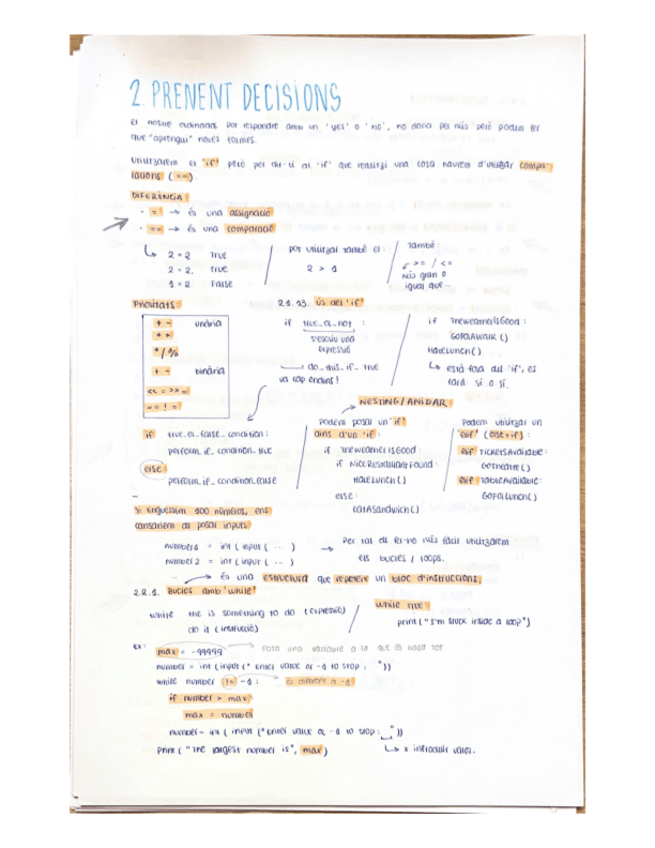 2. PRENENT DECISIONS
El nostre ordinador pot respondre amb un 'yes' o 'no', no dona per més però podem fer
que "aprengui" noves formes.
Utilitzarem el 'if' però per dir-li al 'if' que realitzi una cosa haurem d'utilitzar compa-
racions (==).
DIFERÈNCIA:
· = → és una assignació
· == → és una comparació
2 = 2 True
2 = 2. True
1 = 2 False
pot utilitzar també el:
2 > 1
També:
>= / <=
més gran o
igual que...
Prioritats:
+ - unària
**
* / %
+ - binària
< <= > >=
== !=
2.1.13. Ús del 'if'
if true_or_not :
s'escriu una
expressió
do_this_if_true
va cap endins!
if TheWeatherIsGood :
GoForAWalk ()
HaveLunch ()
està fora del 'if', es
farà sí o sí.
if true_or_false_condition :
perform_if_condition_true
else:
perform_if_condition_false
NESTING / ANIDAR
Podem posar un 'if'
dins d'un 'if':
if TheWeatherIsGood
if NiceRestaurantFound :
HaveLunch ()
else :
EatASandwich ()
Podem utilitzar un
'elif' (else + if) :
elif TicketsAvailable :
GoTheatre ()
elif TableAvailable :
GoForLunch ()
Si tinguessim 100 números, ens
cansaríem de posar inputs.
number1 = int ( input ( ... )
number2 = int ( input ( ... )
...
→ Per tal de fer-ho més fàcil utilitzarem
els bucles / loops.
és una estructura que repeteix un bloc d'instruccions.
2.2.1. Bucles amb 'while'
while the is something to do (expressió)
do it (instrucció)
while True :
print ("I'm stuck inside a loop")
Ex: max = -99999
number = int (input (" enter value or -1 to stop : "))
while number != -1 : és diferent a -1
if number > max
max = number
number = int ( input ("Enter value or -1 to stop : "))
print ( "The largest number is", max) x introduir valor.